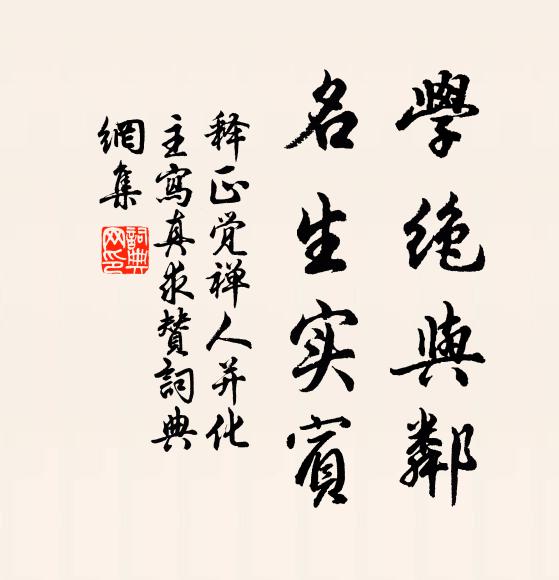 學絶與鄰
名生实賓
释正觉禅人并化
主寫真求赞詞典
網集
詞典网印